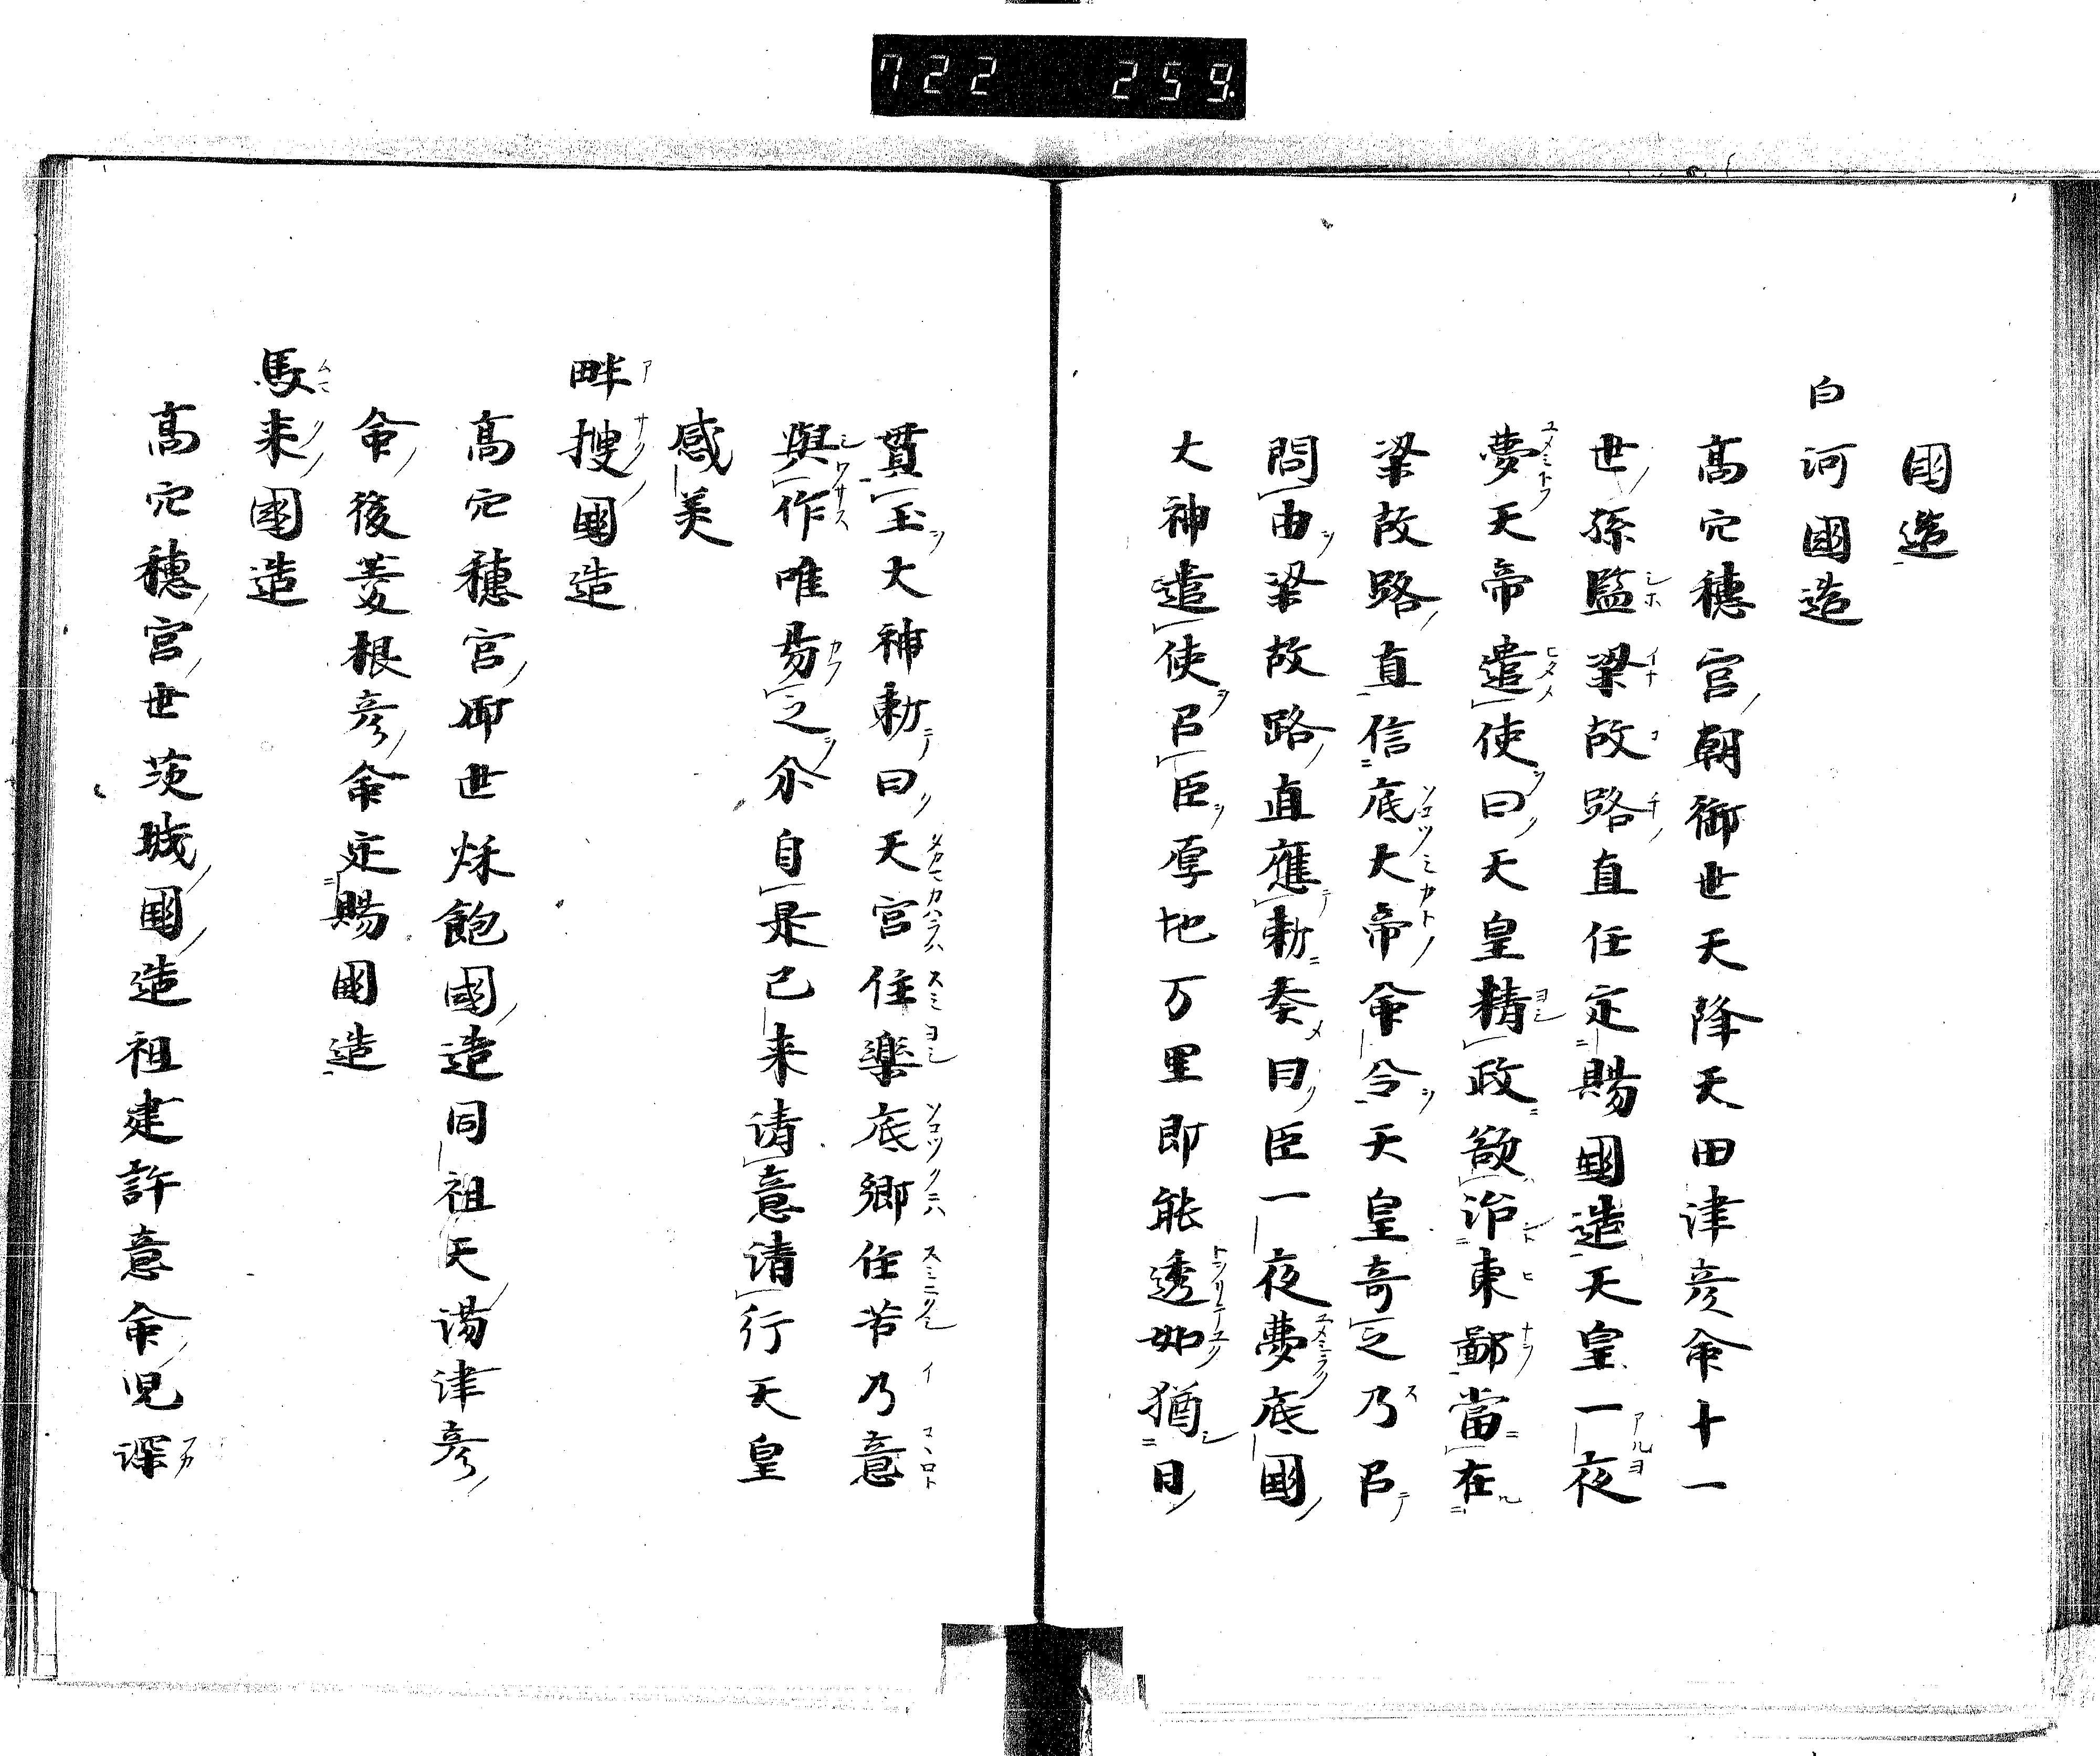 722 259
國造
白河國造
高穴穗宮朝御世天降天田津彦命十一
世孫監梁故路直任定賜國造天皇一夜
夢天帝遣使曰天皇精政欲治東鄙當在
梁故路直信底大帝命令天皇奇之乃召
問由梁故路直應勅奏曰臣一夜夢底國
大神遣使召臣厚地万里即能透如猶日
貫玉大神勅曰天宮住樂底鄉住苦乃意
與作唯易之尒自是已来请意请行天皇
感美
畔搜國造
高穴穗宮御世烁飽國造同祖天湯津彦
命後菱根彦命定賜國造
馬来國造
高穴穗宮世茨城國造祖建許意命児深